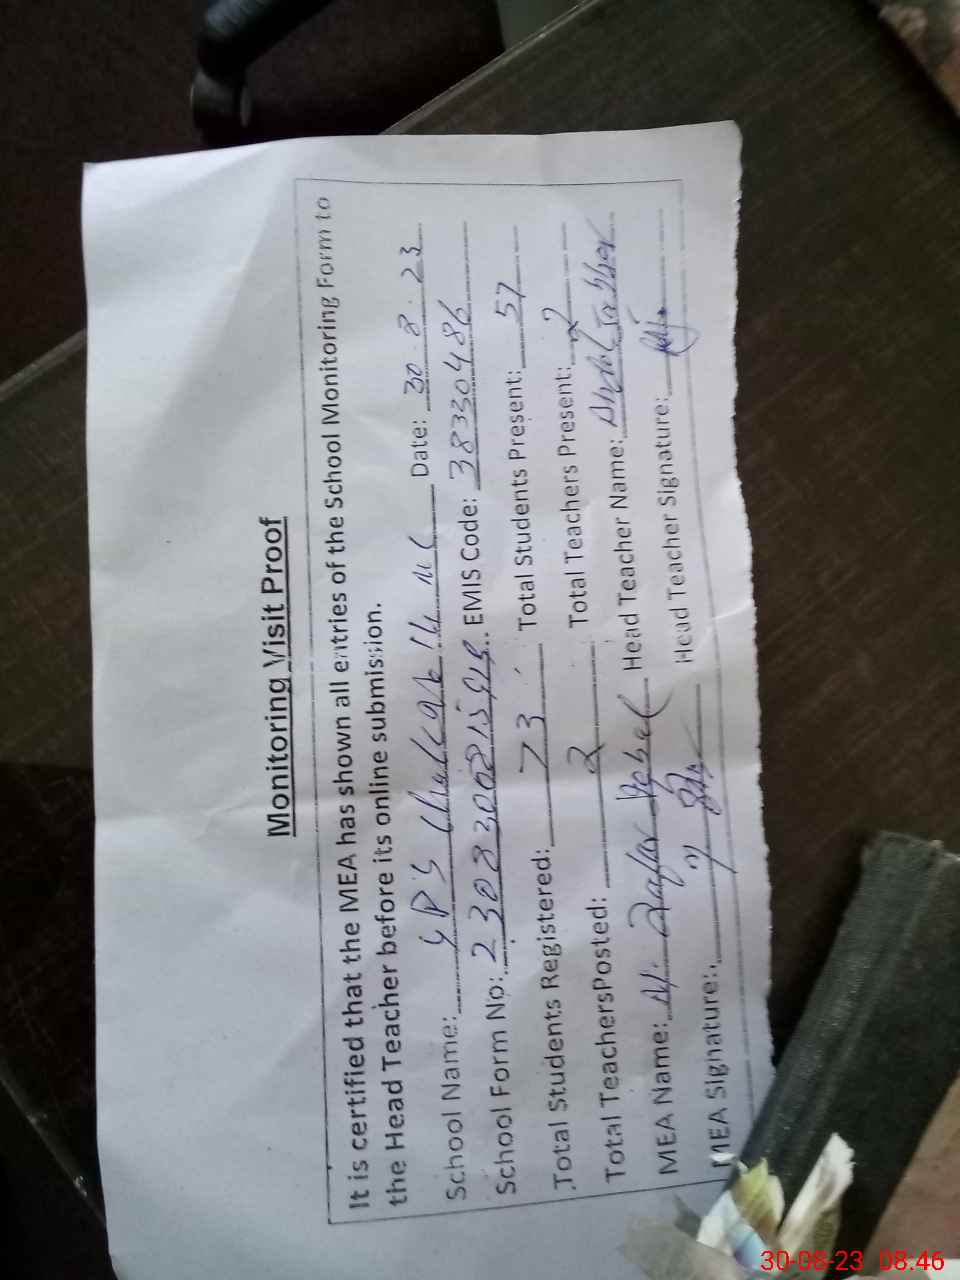 Monitoring Visit Proof
It is certified that the MEA has shown all entries of the School Monitoring Form to
the Head Teacher before its online submission.
School Name: GPS Chak 14 ML Date: 30.8.23
School Form No: EMIS Code: 38330486
Total Students Registered: 73 Total Students Present: 57
Total TeachersPosted: 2 Total Teachers Present: 2
MEA Name: M. Zafar Iqbal Head Teacher Name: Abdul Jabbar
MEA Signature: Head Teacher Signature:
30-08-23 08:46